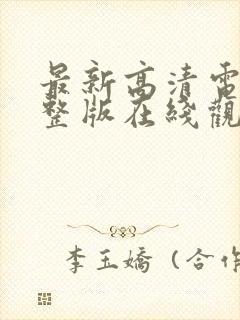 最新高清電
整版在綫觀
李玉嬌（合作